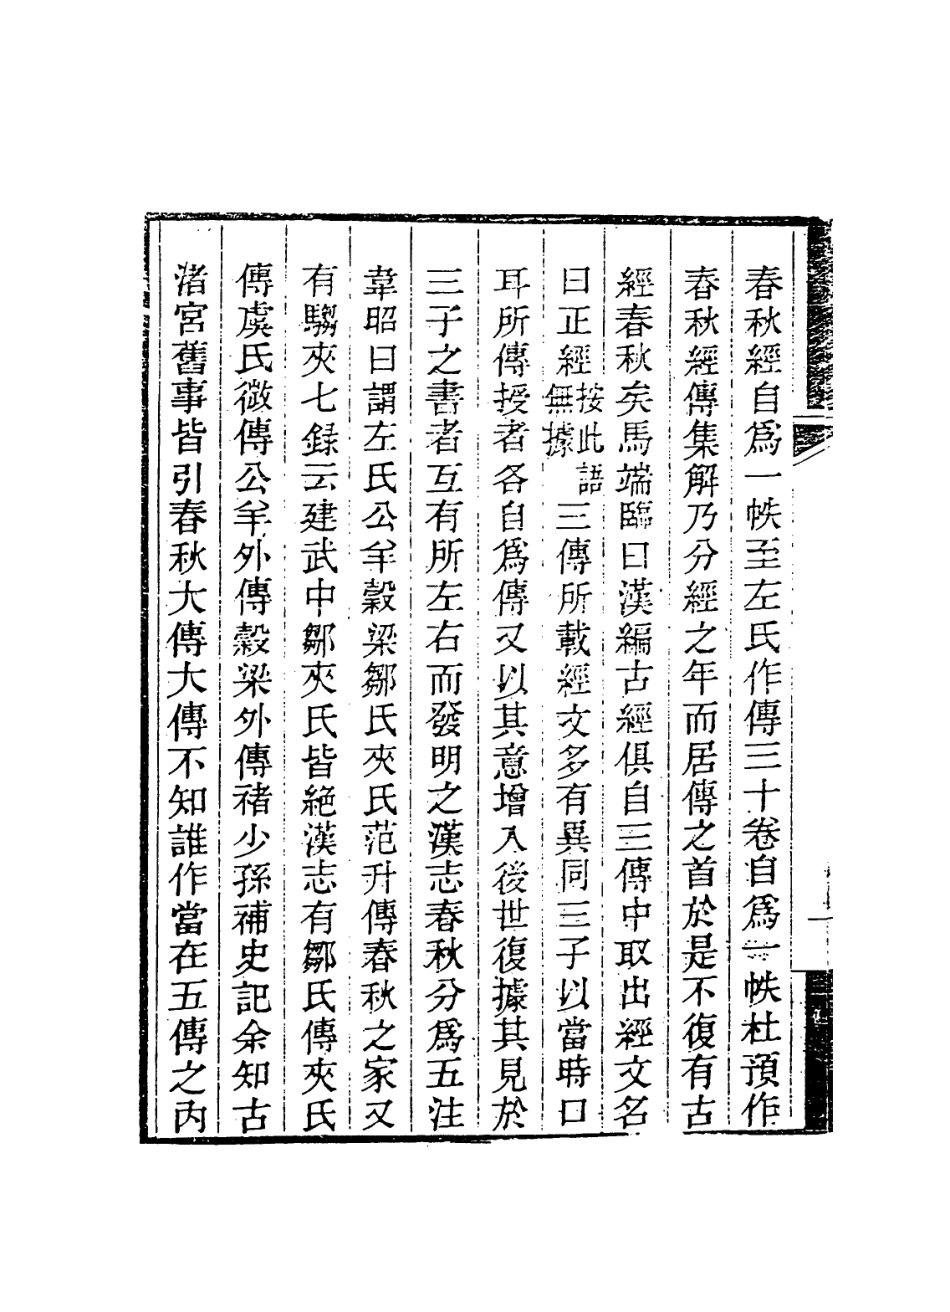 春秋經自爲一帙至左氏作傳三十卷自爲一帙杜預作
春秋經傳集解乃分經之年而居傳之首於是不復有古
經春秋矣馬端臨曰漢編古經俱自三傳中取出經文名
曰正經按此語無據三傳所載經文多有異同三子以當時口
耳所傳授者各自爲傳又以其意增入後世復據其見於
三子之書者互有所左右而發明之漢志春秋分爲五注
韋昭曰謂左氏公羊糓梁鄒氏夾氏范升傳春秋之家又
有騶夾七録云建武中鄒夾氏皆絶漢志有鄒氏傳夾氏
傳虞氏微傳公羊外傳糓梁外傳褚少孫補史記余知古
渚宮舊事皆引春秋大傳大傳不知誰作當在五傳之内